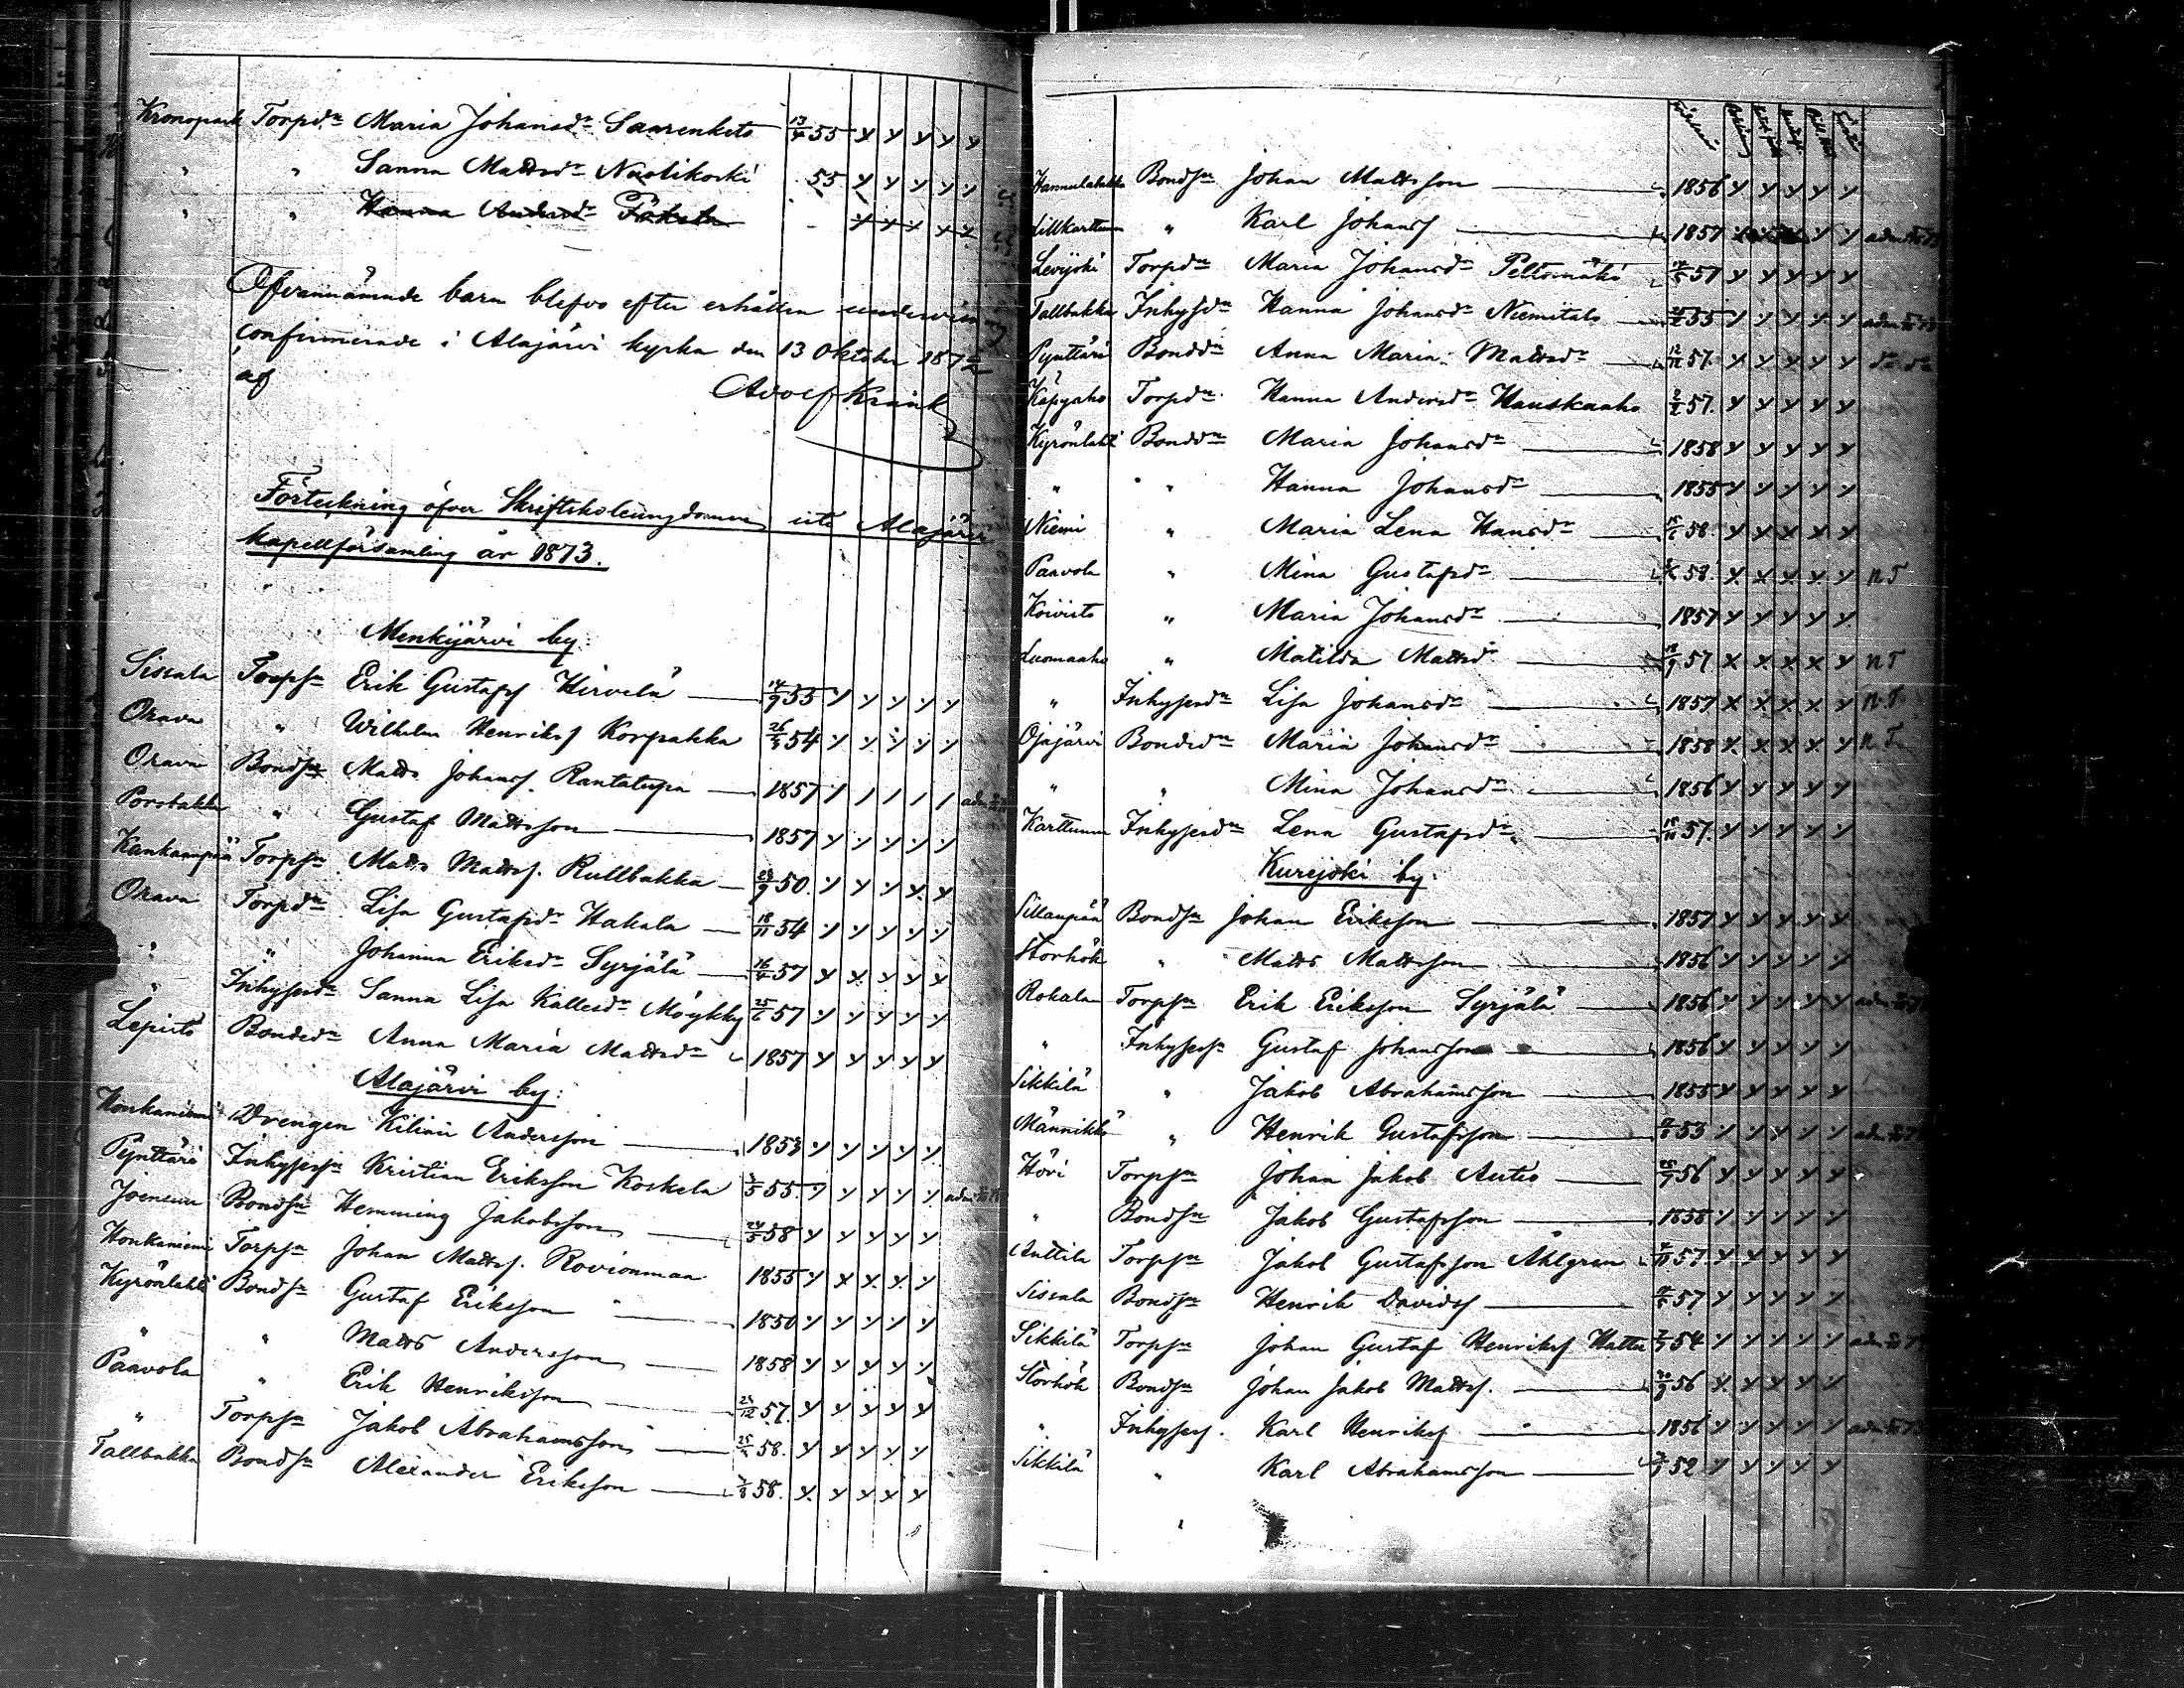 Kronopark Torpdr Maria Johansdr Saarenketo 13/4 55 y y y y y
" " Sanna Mattsdr Nuolikoski 55 y y y y y
" " Hanna Andersdr y y y y y
Ofvannämnde barn blefvo efter erhållen undervisning
confirmerade i Alajärvi kyrka den 13 Oktober 1872
af
Adolf
Förteckning öfver Skriftskoleungdomen uti Alajärvi
kapellförsamling år 1873.
Menkijärvi by:
Sissala Torpsn Erik Gustafsf Hirvelä 14/9 55 y y y y y
Orava " Wilhelm Henriksf Korpakka 26/3 54 y y y y y
Orava Bondsn Matts Johansf. Rantatupa 1857 / / / / /
Porobakka " Gustaf Mattsson 1857 y y y y y
Kankaanpää Torpsn Matts Mattsf. Rullbakka 24/9 50. y y y y y
Orava Torpdn Lisa Gustafsdr Hakala 18/11 54 y y y y y
" " Johanna Eriksdr Syrjälä 16/4 57 y y y y y
" Inhysesdr Sanna Lisa Kallesdr Möykky 25/6 57 y y y y y
Lepistö Bondedn Anna Maria Mattsdr 1857 y y y y y
Alajärvi by:
Honkaniemi Drengen Kilian Andersson 1853 y y y y y
Pynttäri Inhysessn Kristian Eriksson Koskela 55 y y y y y
Joensuu Bondsn Hemming Jakobsson 24/5 58 y y y y y
Honkaniemi Torpsn Johan Mattsf. Rovionmaa 1855 y y y y y
Kyrönlahti Bondsn Gustaf Eriksson 1850 y y y y y
" " Matts Andersson 1858 y y y y y
Paavola " Erik Henriksson 23/12 57. y y y y y
" Torpsn Jakob Abrahamsson 58. y y y y y
Tallbakka Bondsn Alexander Eriksson 58. y y y y y
Hannulabakka Bondsn Johan Mattsson 1856 y y y y y
Lillkarttunen " Karl Johansf 1857 y y
Levijoki Torpdn Maria Johansdr Peltomäki 57 y y y y y
Tallbakka Inhysdn Hanna Johansdr Niemitalo 55 y y y y y
Pynttäri Bonddn Anna Maria Mattsdr 12/11 57. y y y y y do do
Käpyaho Torpdn Hanna Andersdr Hauskaaho 57. y y y y y
Kyrönlahti Bonddn Maria Johansdr 1858 y y y y y
" " Hanna Johansdr 1855 y y y y y
Niemi " Maria Lena Hansdr 58. y y y y y
Paavola " Mina Gustafsdr 58. x x x x y n T
Koivisto " Maria Johansdr 1857 y y y y y
Luomaaho " Matilda Mattsdr 57 x x x x y n T
" Inhysesdn Lisa Johansdr 1857 x x x x y n T
Ojajärvi Bondedn Maria Johansdr 1858 x x x x y n T
" " Mina Johansdr 1856 y y y y y
Karttunen Inhysesdn Lena Gustafsdr 57. y y y y y
Kurejoki by:
Sillanpää Bondsn Johan Eriksson 1857 y y y y y
Storhök " Matts Mattsson 1856 y y y y y
Rokala Torpsn Erik Eriksson Syrjälä 1856 y y y y y
" Inhysessn Gustaf Johansson 1856 y y y y y
Sikkilä " Jakob Abrahamsson 1855 y y y y y
Männikkö " Henrik Gustafsson 53 y y y y y
Höri Torpsn Johan Jakob Autio 56 y y y y y
" Bondsn Jakob Gustafsson 1858 y y y y y
Anttila Torpsn Jakob Gustafsson Åhlgren 57. y y y y y
Sissala Bondsn Henrik Davidsf 57 y y y y y
Sikkilä Torpsn Johan Gustaf Henriksf Hattu 54 y y y y y
Storhök Bondsn Johan Jakob Mattsf. 56 y y y y y
" Inhysesf. Karl Henriksf 1856 y y y y y
Sikkilä " Karl Abrahamsson 52 y y y y y